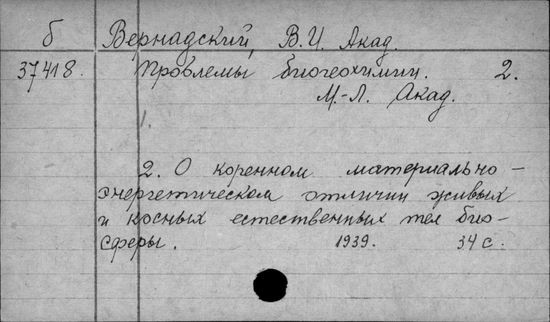 б Вернадский, В.И. Акад.
37418. Проблемы биогеохимии. 2.
М.-Л. Акад.
1.
2. О коренном материально-
энергетическом отличии живых
и косных естественных тел био-
сферы. 1939. 34 с.